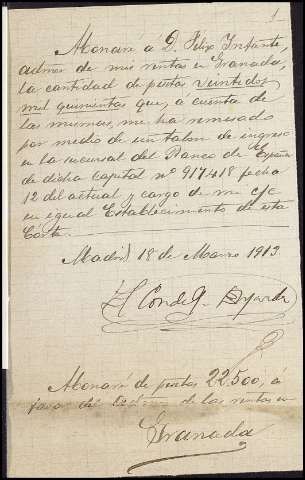 1
Abonaré á D. Felix Infante,
admor de mis rentas en Granada,
la cantidad de pesetas veintidos
mil quinientas que, á cuenta de
las mismas, me ha remesado
por medio de un talon de ingreso
en la sucursal del Banco de España
de dicha capital nº 917.418 fecha
12 del actual y cargo de mi c/c
en igual Establecimiento de esta
Córte.
Madrid 18 de Marzo 1913
El Conde de
Abonaré de pesetas 22.500, á
favor del de las rentas en
Granada